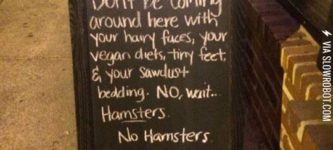 Don't be coming
around here with
your hairy faces, your
vegan diets, tiny feet,
& your sawdust
bedding. NO, wait...
Hamsters.
No Hamsters
VIA SLOWROBOT.COM